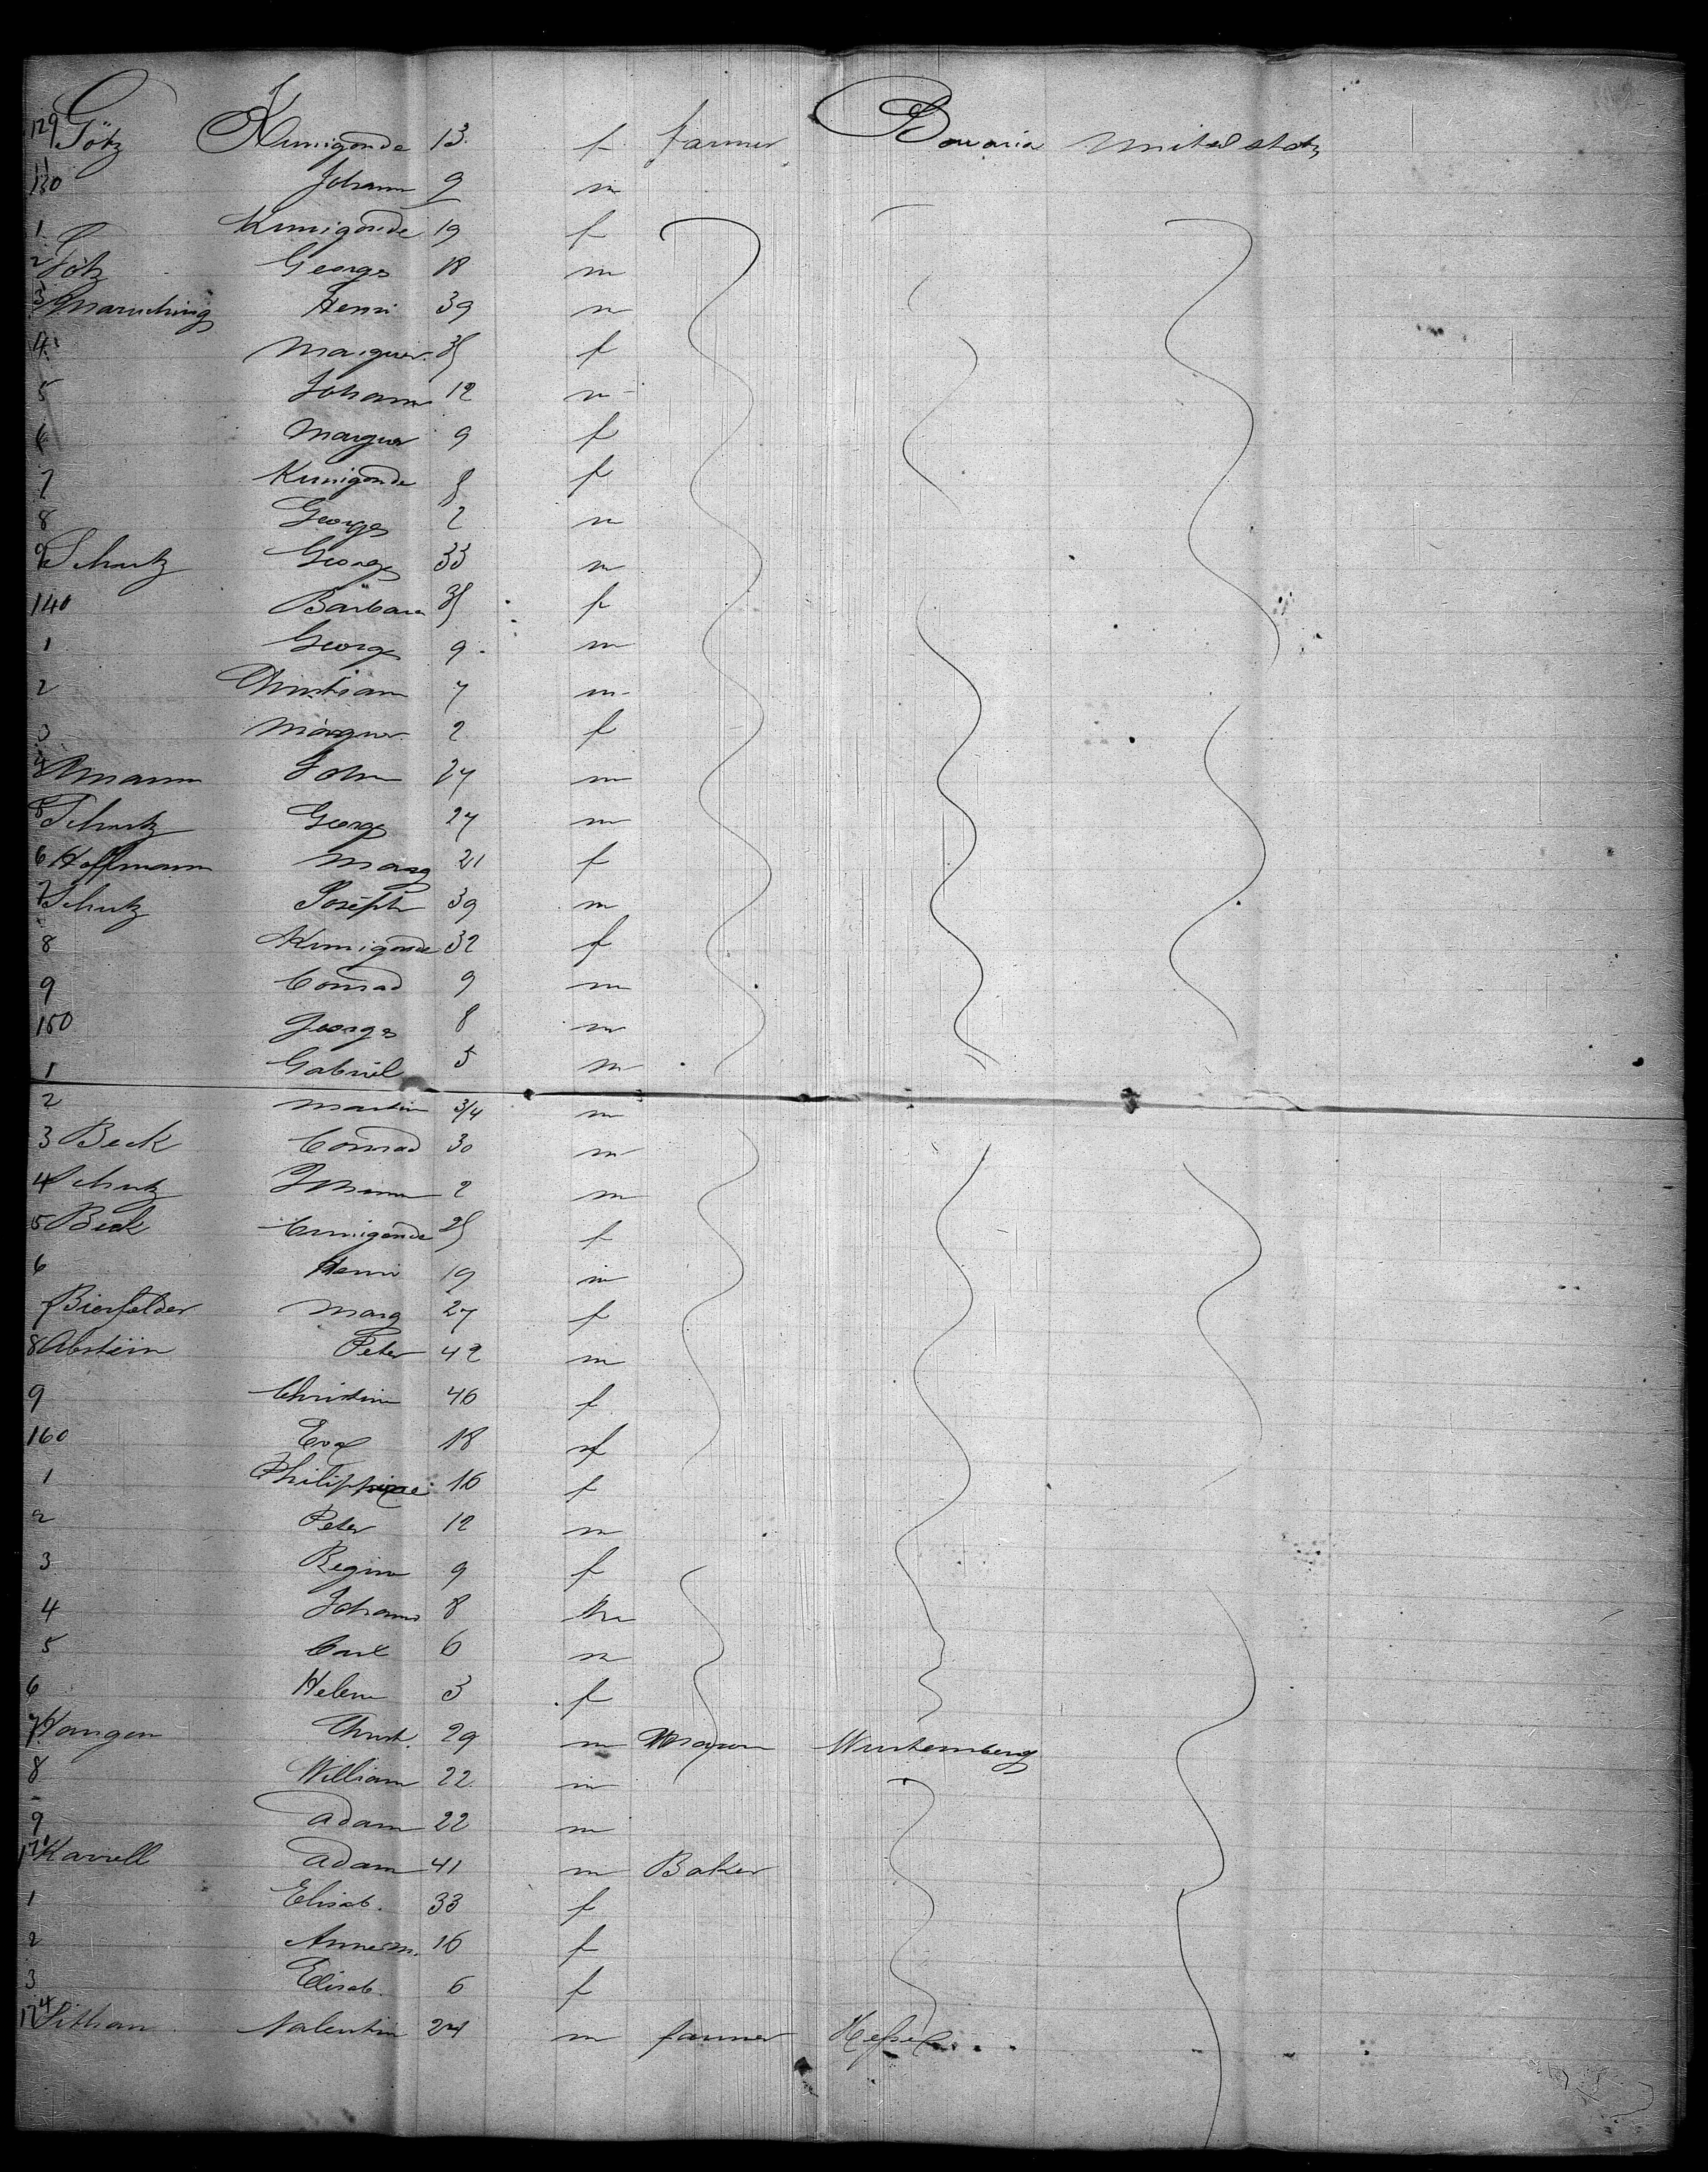 129 Götz Kunigonde 13 f farmer Bavaria United states
130 Johann 9 m
1 Kunigonde 19 f
2 Götz Georges 18 m
3 Henri 39 m
4 Marguer. 35 f
5 Johann 12 m
6 Marguer 9 f
7 Kunigonde 8 f
8 Georges 2 m
9 Schutz Georges 33 m
140 Bärbara 35 f
1 Georg 9 m
2 Christian 7 m
3 Marguer. 2 f
4 Mann John 27 m
5 Schutz Georg 27 m
6 Hoffmann Marg 21 f
7 Schutz Joseph 39 m
8 Kunigonde 32 f
9 Conrad 9 m
150 Georges 8 m
1 Gabriel 5 m
2 Martin 3/4 m
3 Beck Conrad 30 m
4 Schutz Johann 2 m
5 Beck Cunigonde 25 f
6 Henri 19 m
7 Bierfelder Marg 27 f
8 Abstein Peter 42 m
9 Christine 46 f
160 Eva 18 f
1 Philippine 16 f
2 Peter 12 m
3 Regina 9 f
4 Johann 8 m
5 Carl 6 m
6 Helene 3 f
7 Christ. 29 m Mason Wurtemberg
8 William 22 m
9 Adam 22 m
170 Karrell Adam 41 m Baker
1 Elisab. 33 f
2 Anna m. 16 f
3 Elisab. 6 f
174 Valentin 24 m farmer